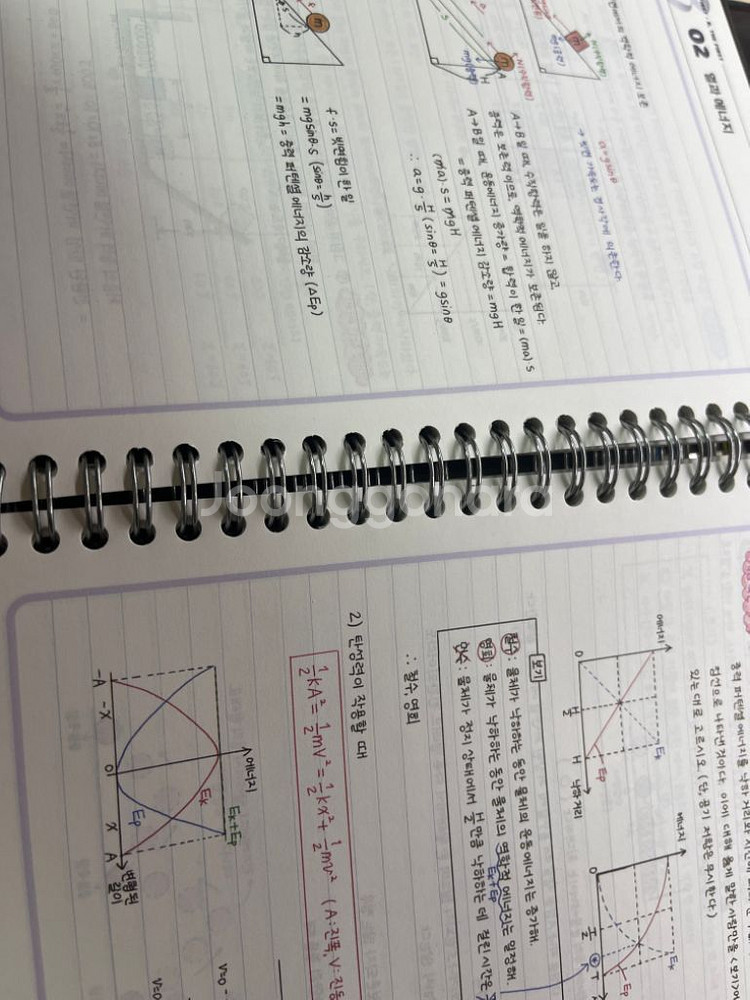 02 열과 에너지
a=gsinθ
→ 빗면 가속도는 경사각에 의존한다.
A→B일 때, 수직항력은 일을 하지 않고
중력은 보존력이므로, 역학적 에너지가 보존된다.
A→B일 때, 운동에너지 증가량 = 합력이 한 일 = (ma)·s
= 중력 퍼텐셜 에너지 감소량 = mgH
(ma)·s = mgH
∴ a=g·H/s (sinθ=H/s) = gsinθ
f·s = 빗면힘이 한 일
= mgsinθ·s (sinθ=h/s)
= mgh = 중력 퍼텐셜 에너지의 감소량 (ΔEp)
Joonggonara
중력 퍼텐셜 에너지를 낙하 거리와 시간에
것으로 나타낸 것이다. 이에 대해 옳게 말한 사람만을 <보기>에
있는대로 고르시오. (단, 공기 저항은 무시한다.)
에너지
Ek
Ep
0
H/2
H
낙하 거리
에너지
Ek
0
T/2
T
E
보기
철수: 물체가 낙하하는 동안 물체의 운동 에너지는 증가해.
영희: 물체가 낙하하는 동안 물체의 역학적 에너지는 일정해.
Ek+Ep
민수: 물체가 정지 상태에서 H/2만큼 낙하하는 데 걸린 시간은
∴ 철수, 영희
2) 탄성력이 작용할 때
½kA² = ½mV² = ½kx² + ½mv² (A:진폭, V:진동
에너지
Ek+Ep
Ek
Ep
-A -X 0 X A
변형된 길이
V=0
V=0